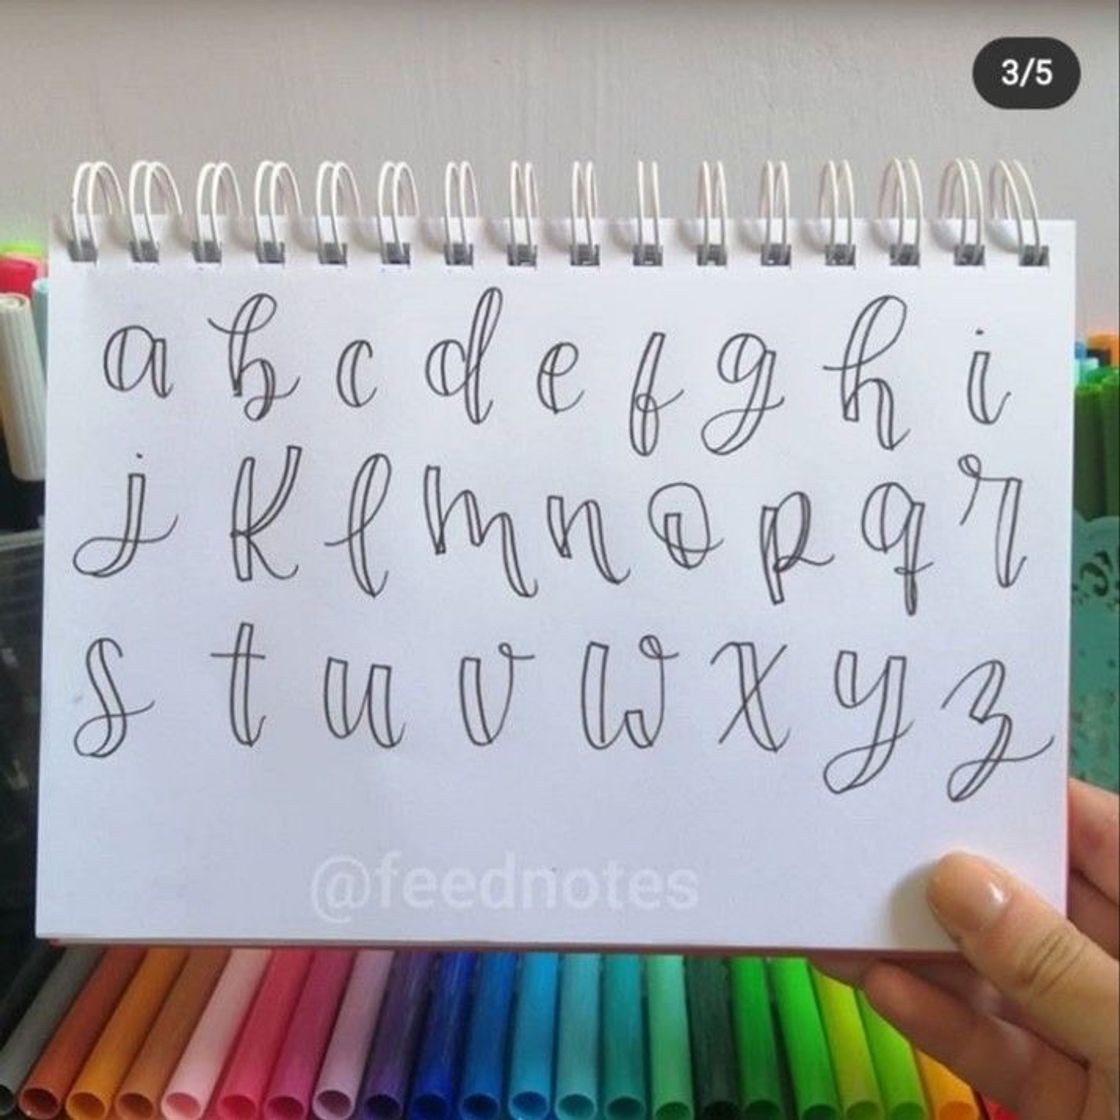 3/5
a b c d e f g h i
j k l m n o p q r
s t u v w x y z
@feednotes